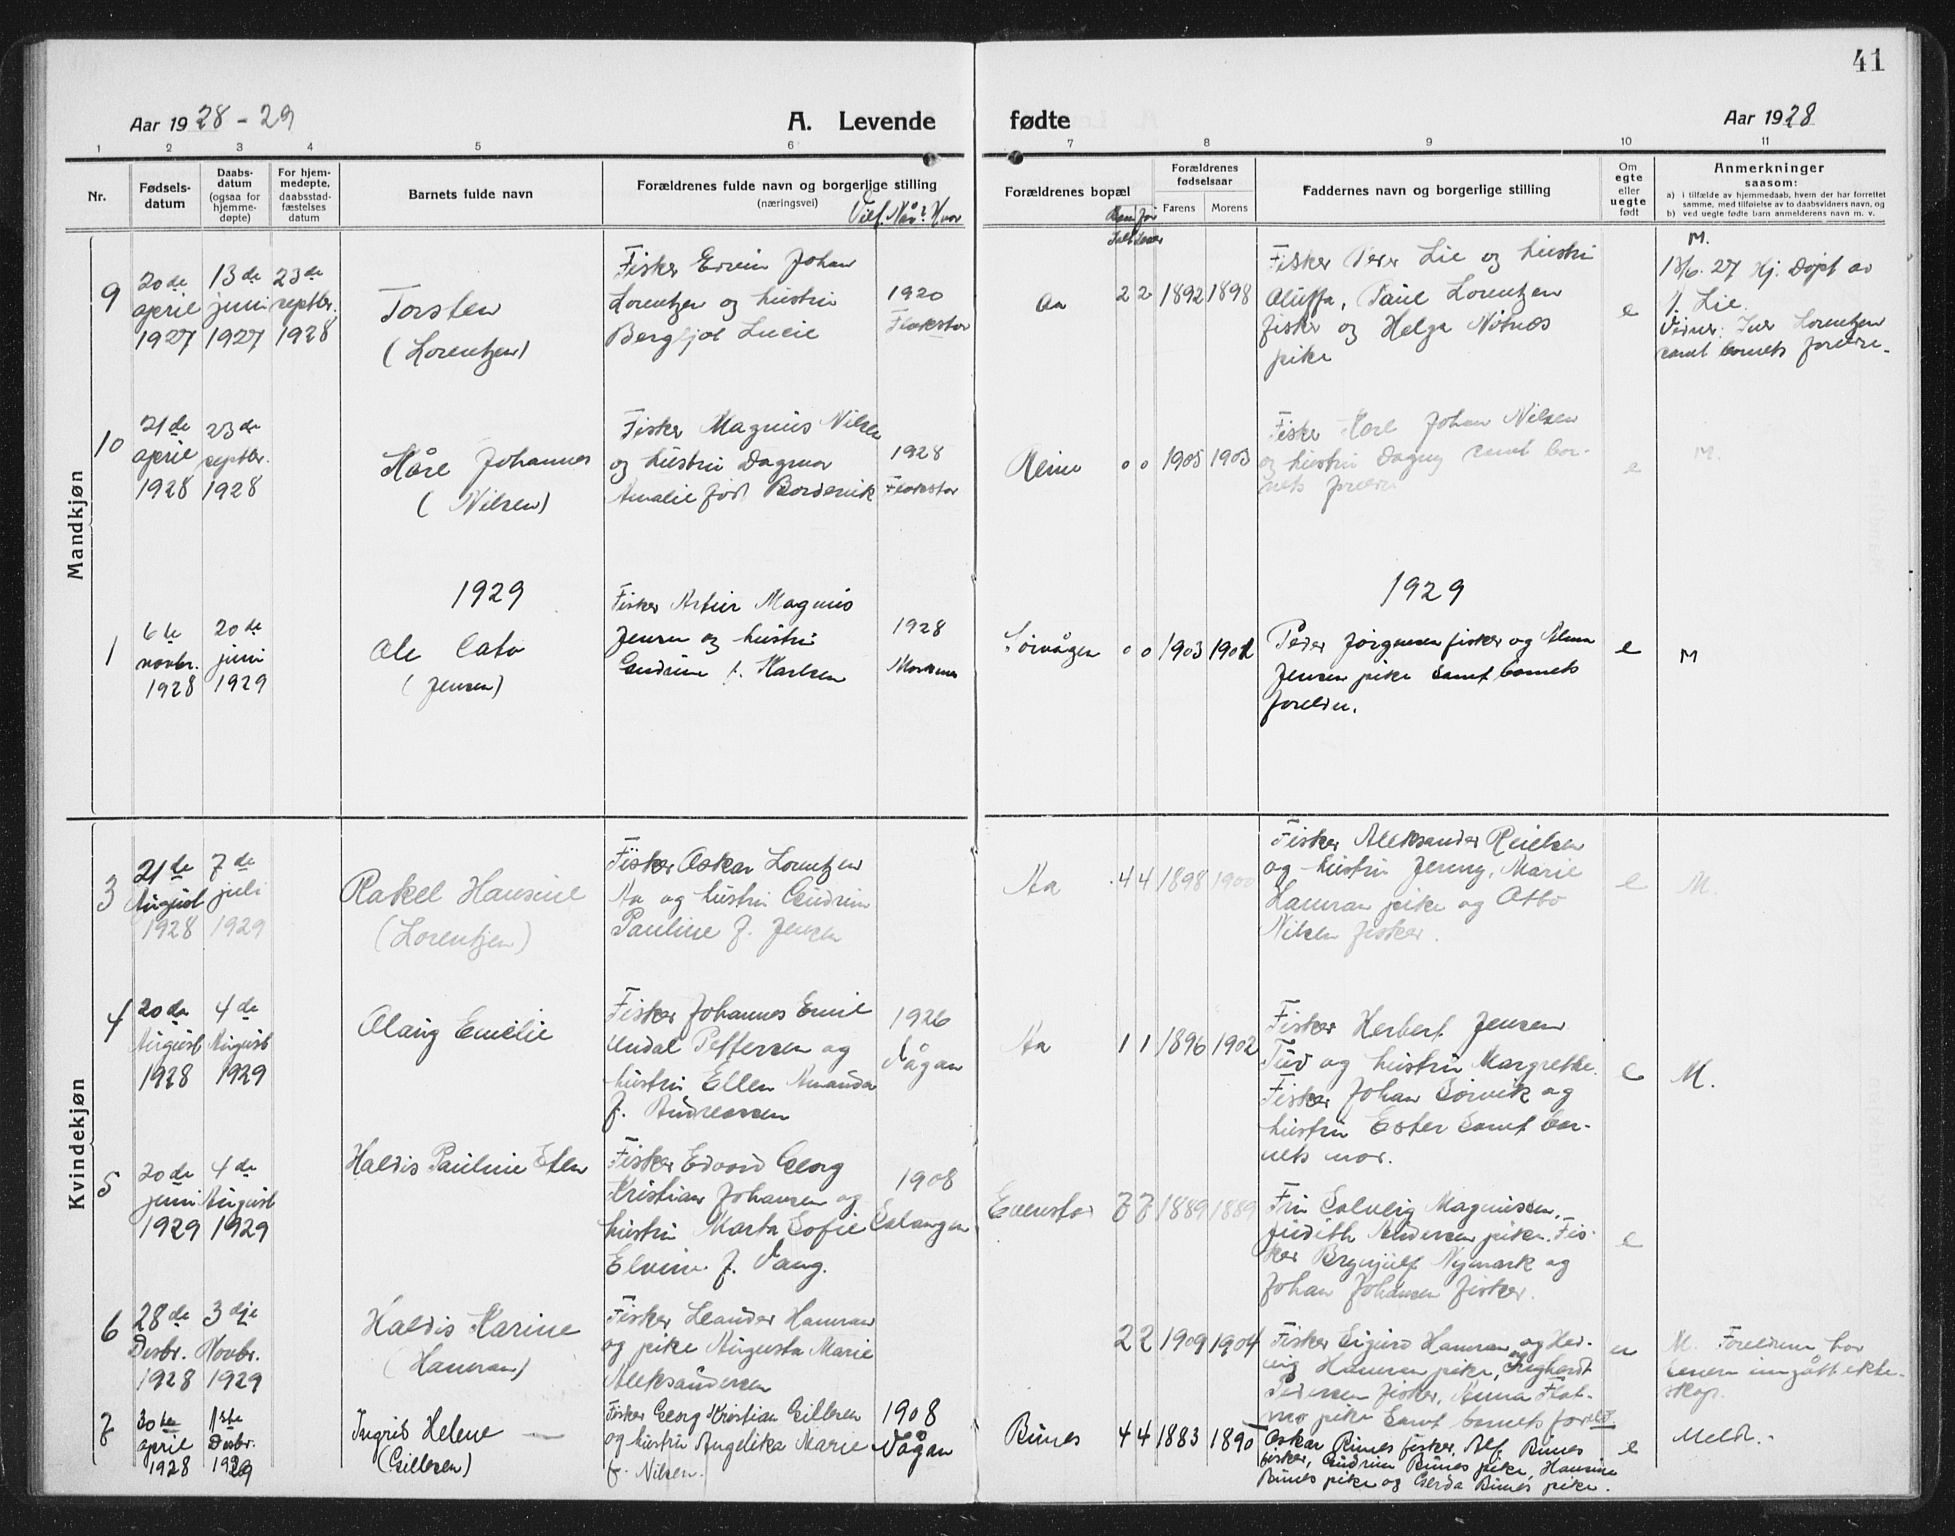 41
Aar 1928 - 29
A. Levende
fødte
Aar 1928
1 2 3 4 5 6
7 8 9 10 11
Nr.
Fødsels-
datum
Daabs-
datum
(ogsaa for
hjemme-
døpte)
For hjem-
medøpte,
daabsstad-
fæstelses
datum
Barnets fulde navn
Forældrenes fulde navn og borgerlige stilling
(næringsvei)
Viet. Når? Hvor
Forældrenes bopæl
Forældrenes
fødselsaar
Farens Morens
Faddernes navn og borgerlige stilling
Om
egte
eller
uegte
født
Anmerkninger
saasom:
a) i tilfælde av hjemmedaab, hvem der har forrettet
samme, med tilføielse av to daabsvidners navn, og
b) ved uegte fødte barn anmelderens navn m. v.
Mandkjøn
9
20de
april
1927
13de
juni
1927
23de
septbr.
1928
Torsten
(Lorentzen)
Fisker Ervin Johan
Lorentzen og hustru
Bergljot Lucie
1920
Flakstad
Aa
2 2 1892 1898
Fisker Peder Lie og hustru
Aluffa, Paul Lorentzen
fisker og Helga Nøtnæs
pike
e
M.
13/6. 27 Hj. Døpt av
P. Lie.
Vidner: Ivar Lorentzen
samt barnets foreldre.
10
21de
april
1928
23de
septbr.
1928
Kåre Johannes
(Nilsen)
Fisker Magnus Nilsen
og hustru Dagmar
Amalie født Bordevik
1928
Flakstad
Reine
0 0 1905 1903
Fisker Karl Johan Nilsen
og hustru Dagny samt bar-
nets foreldre
e
M.
1929
1929
1
6te
novbr.
1928
20de
juni
1929
Ole Cato
(Jensen)
Fisker Artur Magnus
Jensen og hustru
Gudrun f. Karlsen
1928
Moskenes
Sørvågen
0 0 1903 1902
Peder Jørgensen fisker og Alma
Jensen pike samt barnets
foreldre.
e
M
Kvindekjøn
3
21de
August
1928
7de
juli
1929
Rakel Hansine
(Lorentzen)
Fisker Oskar Lorentzen
Aa og hustru Gudrun
Pauline f. Jensen
Aa
4 4 1898 1900
Fisker Aleksander Reielsen
og hustru Jenny, Marie
Hamran pike og Otto
Nilsen fisker.
e
M.
4
20de
August
1928
4de
August
1929
Olaug Emelie
Fisker Johannes Emil
Undal Pettersen og
hustru Ellen Amanda
f. Andreassen
1926
Vågan
Aa
1 1 1896 1902
Fisker Herbert Jensen
Tuv og hustru Margrethe.
Fisker Johan Sørvik og
hustru Ester samt bar-
nets mor.
e
M.
5
20de
juni
1929
4de
August
1929
Haldis Pauline Ellen
Fisker Edvard Georg
Kristian Johansen og
hustru Marta Sofie
Elvine f. Vang.
1908
Salangen
Evenstad
7 7 1889 1889
Fru Solveig Magnussen,
Judith Andersen pike. Fis-
ker Brynjulf Nymark og
Johan Johansen fisker.
e
6
28de
Desbr.
1928
3dje
Novbr.
1929
Haldis Karine
(Hamran)
Fisker Leander Hamran
og pike Augusta Marie
Aleksandersen
2 2 1909 1904
Fisker Sigurd Hamran og Hed-
vig Hamran pike, og
Pedersen fisker, Anna Flat-
mo pike samt barnets foreld.
u
M. Foreldrene har
senere inngått ekte-
skap.
7
30te
april
1928
1ste
Desbr.
1929
Ingrid Helene
(Gillesen)
Fisker Georg Kristian Gillesen
og hustru Angelika Marie
f. Nilsen.
1908
Vågan
Bunes
4 4 1883 1890
Oskar Bunes fisker, Alf Bunes
fisker, Gudrun Bunes pike, Hansine
Bunes pike og Gerda Bunes pike.
e
Meldt.